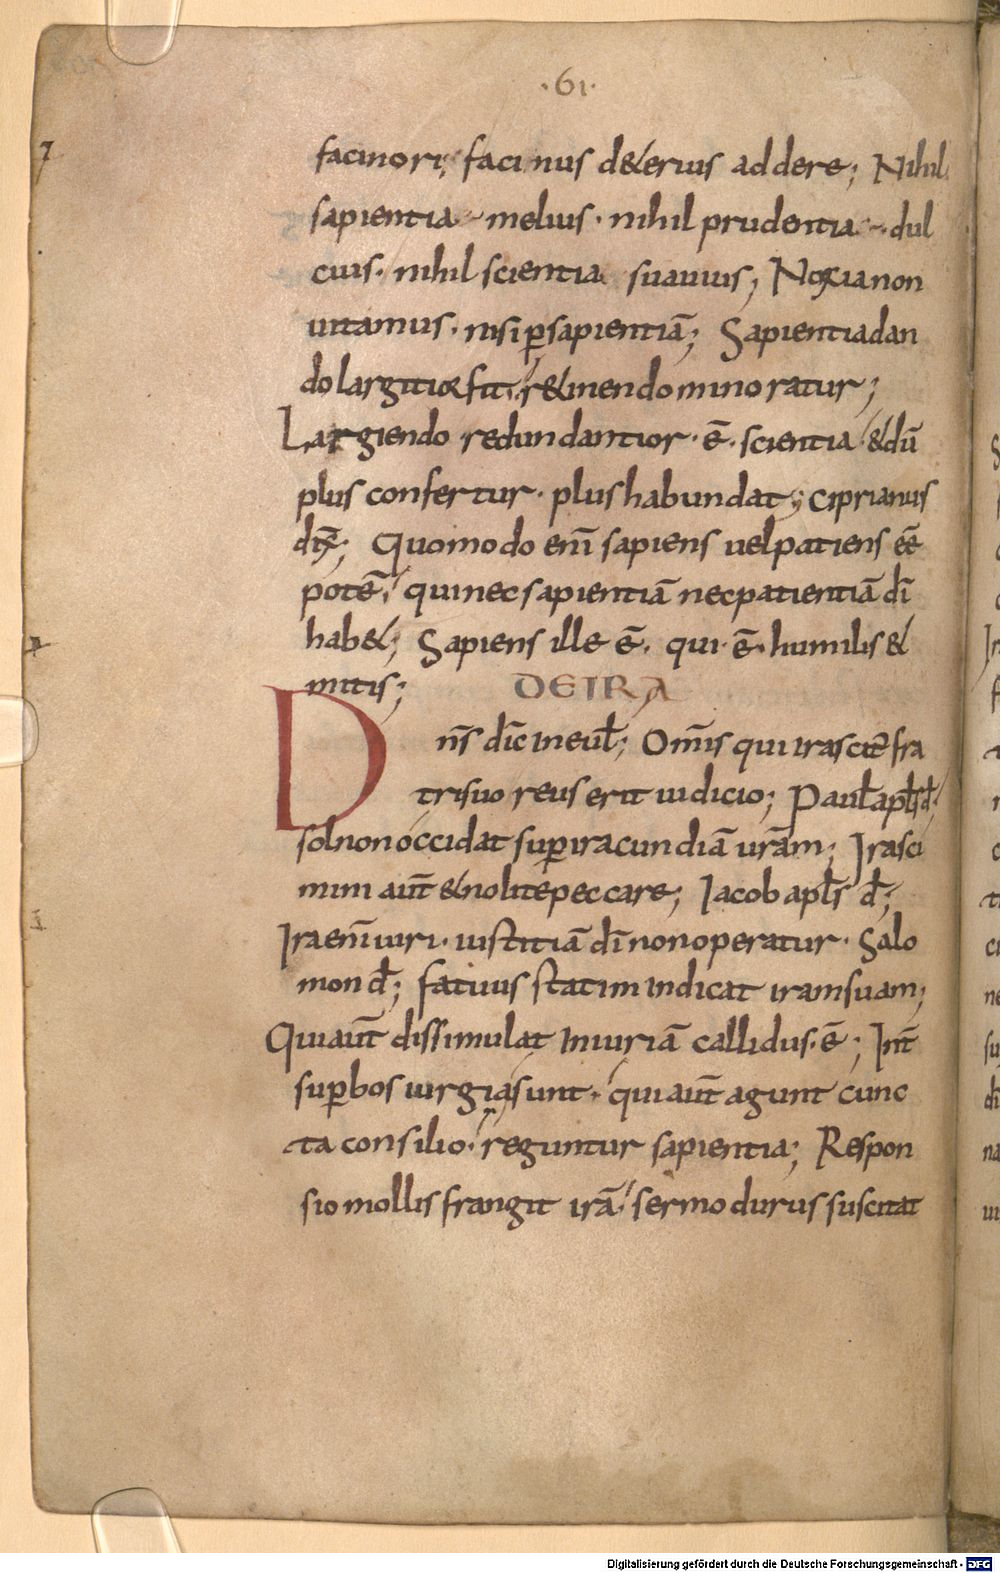 ·61·
facinori; facinus d&erius addere; Nihil
sapientia melius · nihil prudentia dul
cius · nihil scientia suauius; Noxia non
uitamus · nisi ꝑ sapientiā; Sapientia dan
do largitior fit, r&inendo minoratur;
Largiendo redundantior · ē · scientia · & dū
plus confertur · plus habundat; Ciprianus
dix̄; Quomodo eni̅ sapiens uel patiens eē
potē, qui nec sapientiā nec patientiā dī
hab&; Sapiens ille ē · qui · ē · humilis &
mitis; DE IRA
Dn̄s dic̄ in eul̄; Om̄is qui irascit̄ fra
tri suo reus erit iudicio; Paul̄ apl̄s d̄;
sol non occidat suꝑ iracundiā ur̄am; Irasci
mini aut̄ & nolite peccare; Iacob apl̄s d̄;
Ira eni̅ uiri · iustitiā dī non operatur · Salo
mon d̄; fatuus statim indicat iram suam;
Qui aut̄ dissimulat iniuriā callidus · ē; Int̄
suꝑbos iurgia sunt · qui aut̄ agunt cunc
ta consilio · reguntur sapientia; Respon
sio mollis frangit irā · sermo durus suscitat
Digitalisierung gefördert durch die Deutsche Forschungsgemeinschaft - DFG